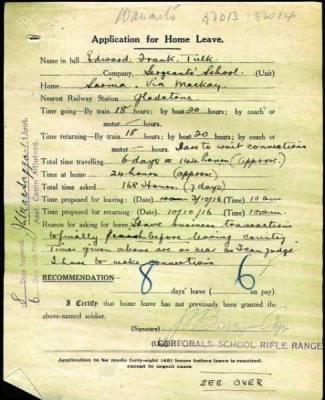 52013 - 52014
Application for Home Leave.
Name in full Edward Frank Tulk
Company, Sergeants' School. (Unit)
Home Sarina. Via Mackay
Nearest Railway Station Gladstone.
Time going—By train 18 hours; by boat 20 hours; by coach or
motor — hours.
Time returning—By train 18 hours; by boat 20 hours; by coach or
motor — hours. I have to wait connections
Total time travelling 6 days or 144 hours (approx.)
Time at home 24 hours (approx)
Total time asked 168 Hours. (7 days)
Time proposed for leaving: 3/10/16 (Time) 10am
Time proposed for returning: (Date). 10/10/16 (Time) 10am.
Reason for asking for leave: Have business transactions
to finally finish before leaving country
Time given above are as near as I can judge.
I have to make connections
RECOMMENDATION 8 6
days' leave ( on pay).
I Certify that home leave has not previously been granted the
above-named soldier.
(Signature)
CORPORALS SCHOOL RIFLE RANGE
Application to be made forty-eight (48) hours before leave is required,
except in urgent cases
SEE OVER